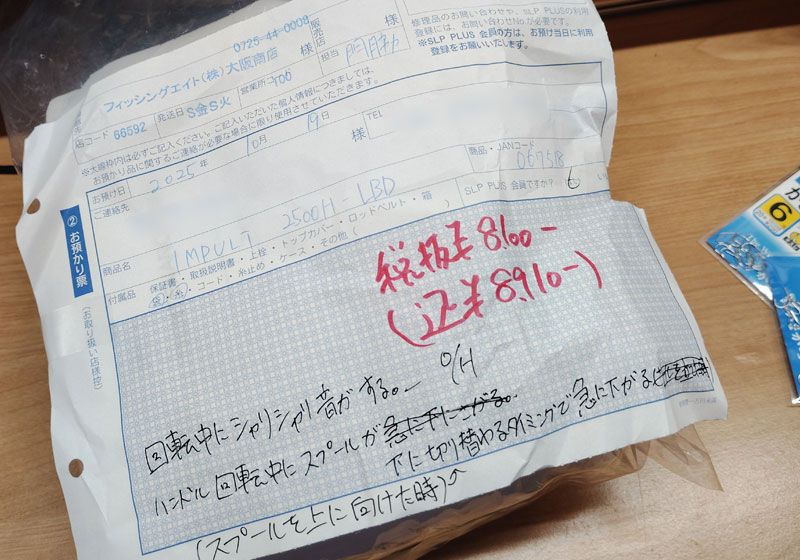 修理品のお問い合わせや、SLP PLUSの利用
登録には、お問い合わせNo.が必要です。
※SLP PLUS 会員の方は、お預け当日に利用
登録をお願いいたします。
0725-44-0009
販売店
様
担当
様
フィッシングエイト(株)大阪南店
店コード 66592 発送日 S金S火 営業所
※太線枠内は必ずご記入ください。ご記入いただいた個人情報につきましては、
お預かり品に関するご連絡が必要な場合に限り使用させていただきます。
お預け日 2025年 10月 19日
ご連絡先
様
TEL
商品・JANコード
商品名 IMPULT 2500H-LBD
SLP PLUS 会員ですか?
付属品 保証書・取扱説明書・上栓・トップカバー・ロッドベルト・箱
袋・糸・コード・糸止め・ケース・その他(
② お預かり票
(お取り扱い店様控)
税抜¥8100-
(込¥8910-)
O/H
回転中にシャリシャリ音がする。
ハンドル回転中にスプールが急に下に下がる。
下に切り替わるタイミングで急に下がる
(スプールを上に向けた時)
6